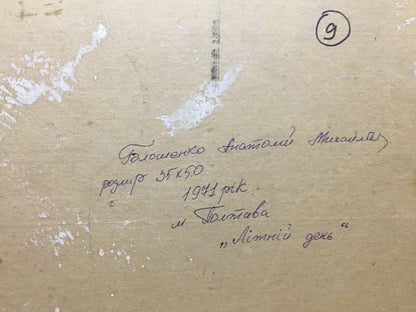 9
Голошенко Анатолій Михайлов
розмір 35х50
1971 рік
м Полтава
„Літній день“